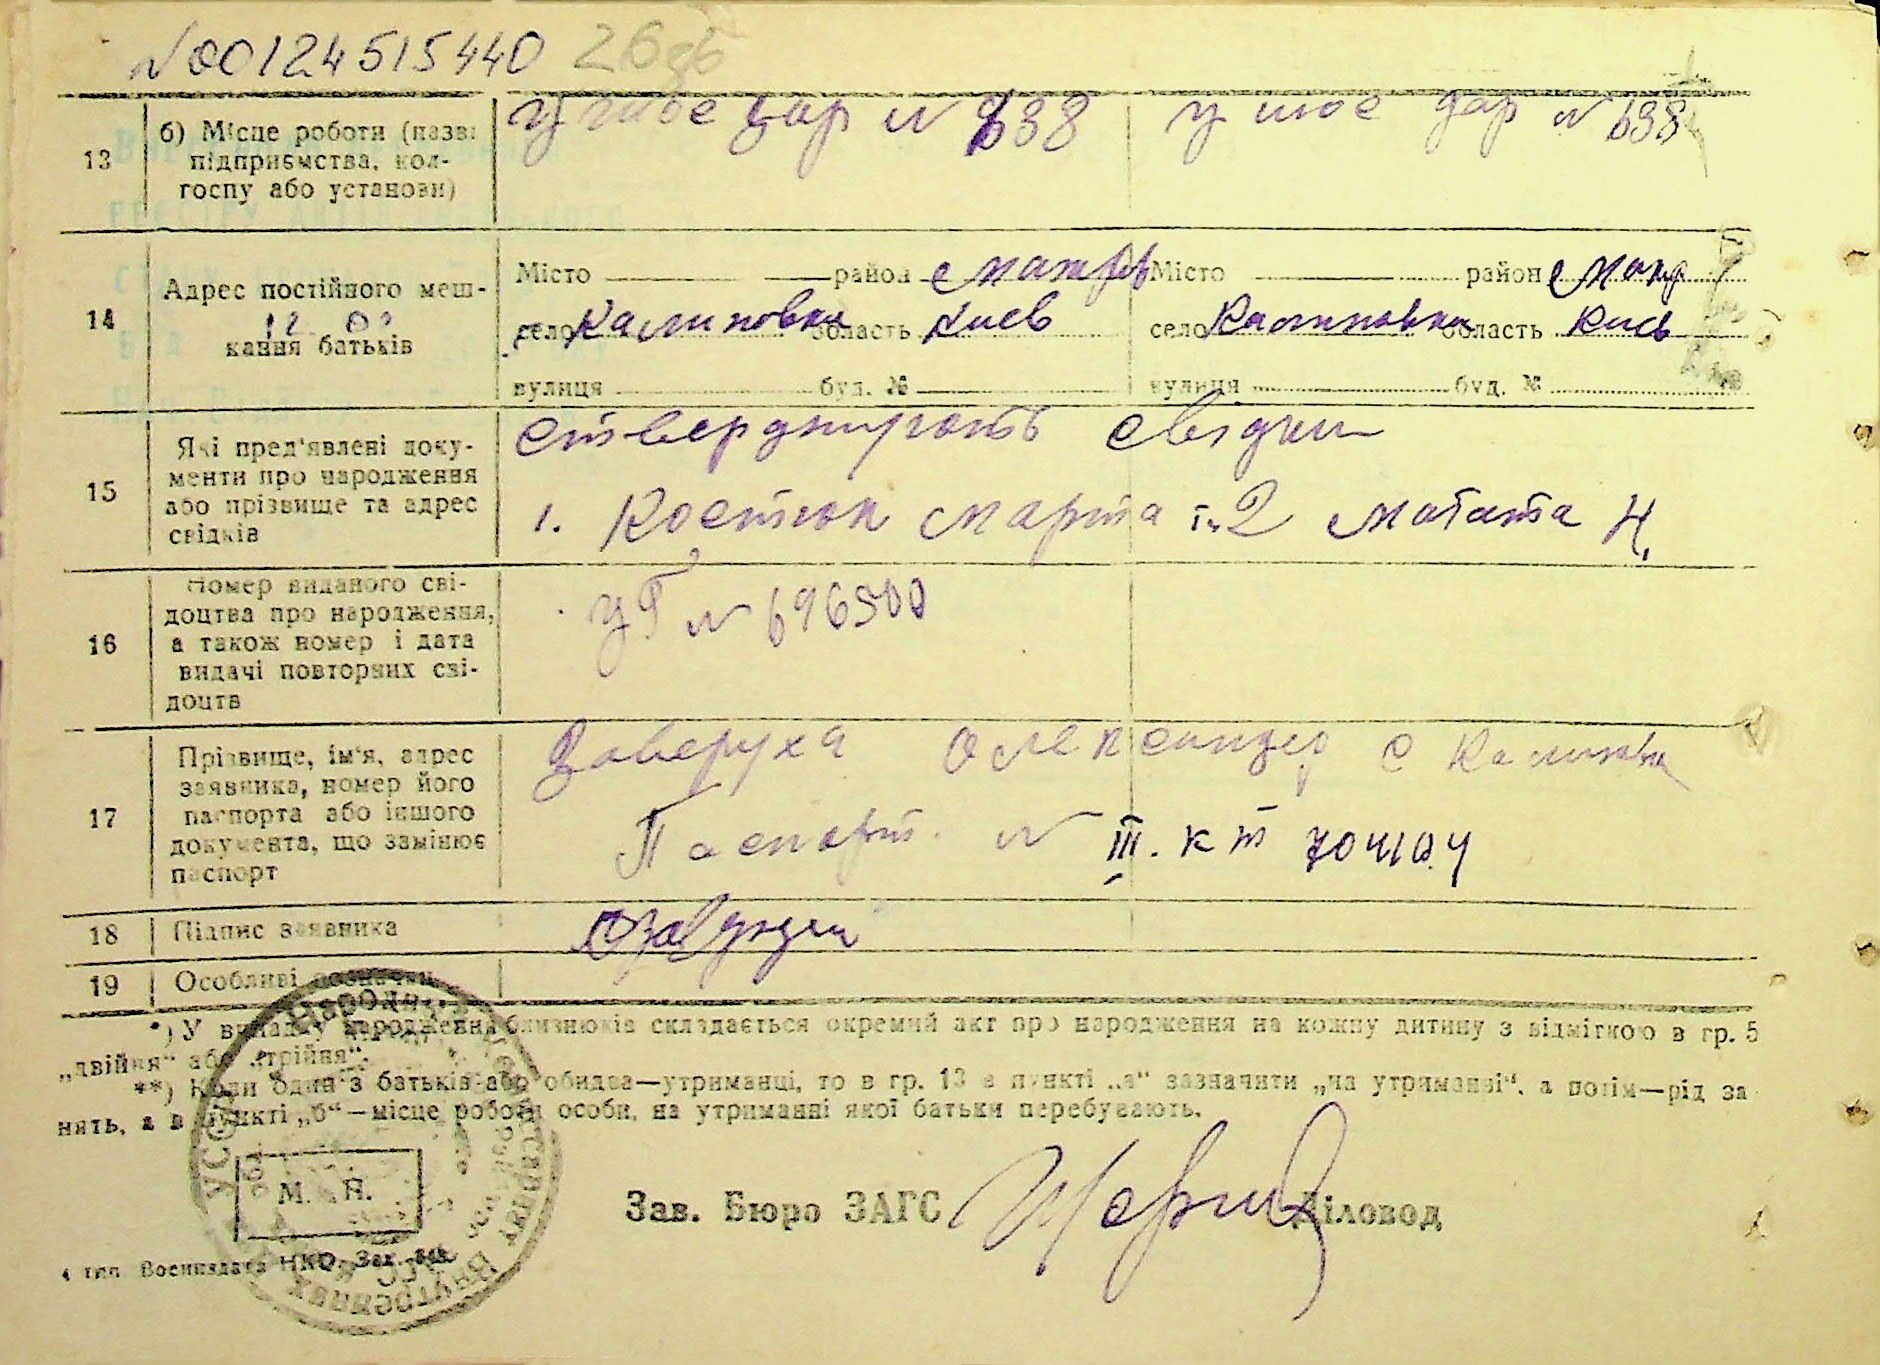 № 00124515440
13
б) Місце роботи (назва
підприємства, кол-
госпу або установи)
у шос дар № 638
у шос дар № 638
14
Адрес постійного меш-
кання батьків
Місто район Макарів
село Калиновка область Киев
вулиця буд. №
Місто район Макар
село Калиновка область Киев
вулиця буд. №
15
Які пред'явлені доку-
менти про народження
або прізвище та адрес
свідків
Стверджують свідки
1. Костюк Марта т. 2 Н.
16
Номер виданого сві-
доцтва про народження,
а також номер і дата
видачі повторних сві-
доцтв
УГ № 696500
17
Прізвище, ім'я, адрес
заявника, номер його
паспорта або іншого
документа, що замінює
паспорт
Заверуха Олександр с Калинівка
Паспорт № III. КТ 704104
18
Підпис заявника
19
Особливі зазначки
*) У випадку народження близнюків складається окремий акт про народження на кожну дитину з відміткою в гр. 5
„двійня" або „трійня".
**) Коли один з батьків або обидва—утриманці, то в гр. 13 в пункті „а" зазначити „на утриманні", а потім—рід за
нять, а в пункті „б"—місце роботи особи, на утриманні якої батьки перебувають.
М. П.
Зав. Бюро ЗАГС
Діловод
4 тип Воениздата НКО. Зак.